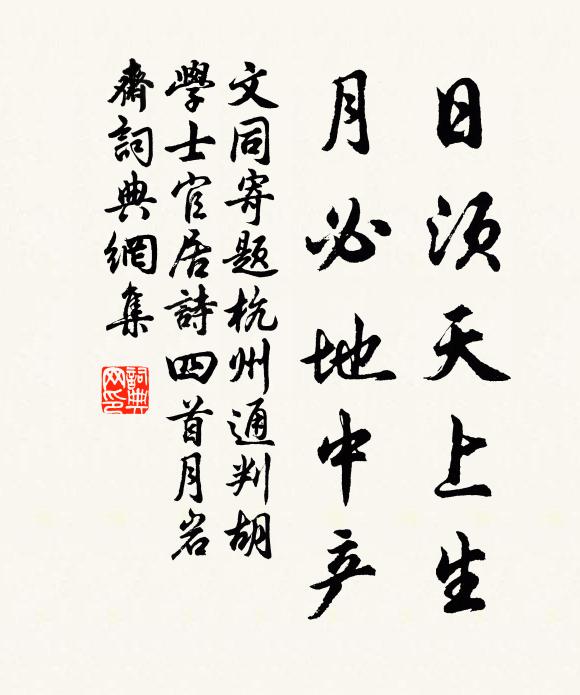 日须天上生
月必地中产
文同寄题杭州通判胡
學士官居詩四首月岩
齋詞典網集
詞典
网印